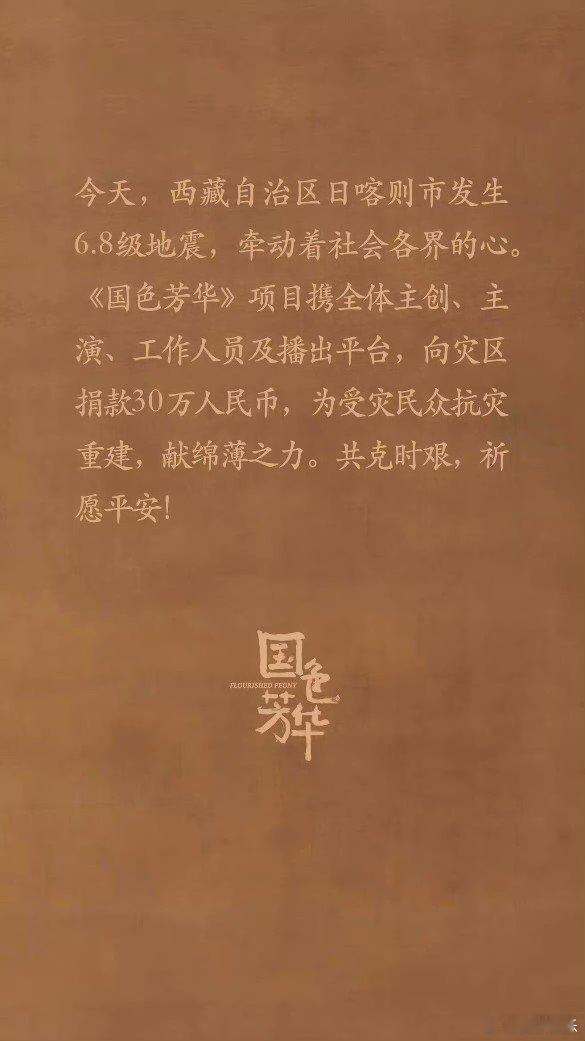 今天，西藏自治区日喀则市发生
6.8级地震，牵动着社会各界的心。
《国色芳华》项目携全体主创、主
演、工作人员及播出平台，向灾区
捐款30万人民币，为受灾民众抗灾
重建，献绵薄之力。共克时艰，祈
愿平安！
国色
FLOURISHED PEONY
芳华